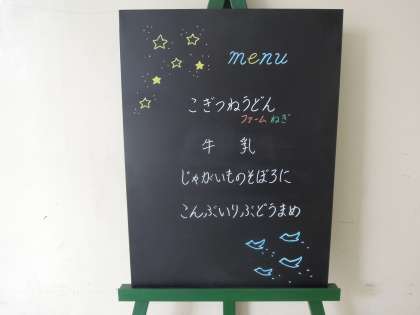 menu
こぎつねうどん
ファームねぎ
牛乳
じゃがいものそぼろに
こんぶいりぶどうまめ